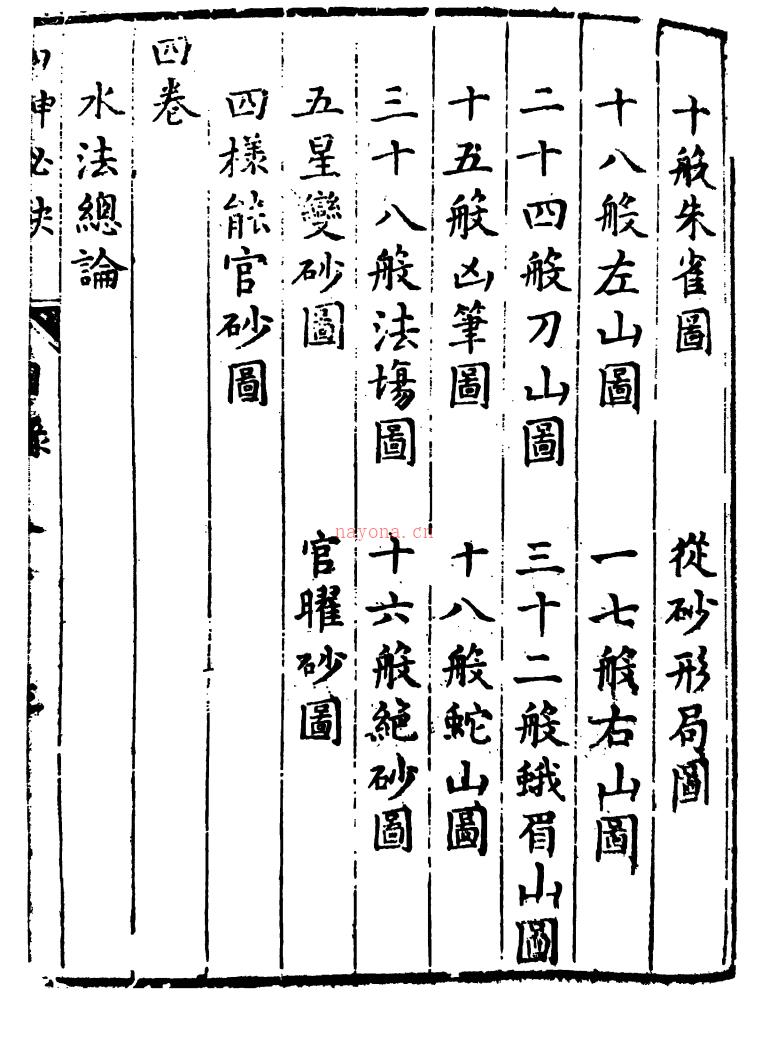 十般朱雀圖　從砂形局圖
十八般左山圖　一七般右山圖
二十四般刀山圖　三十二般蛾眉山圖
十五般凶筆圖　十八般蛇山圖
三十八般法場圖　十六般絕砂圖
五星變砂圖　官曜砂圖
四樣能官砂圖
四卷
水法總論
nayona.cn